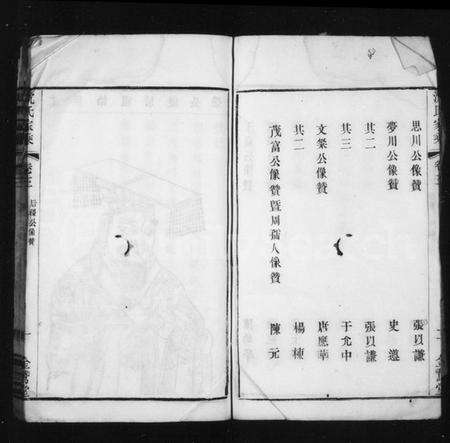 思川公像贊 張以謙
夢川公像贊 史遷
其二 張以謙
其三 于允中
文榮公像贊 唐應華
其二 楊棟
茂富公像贊暨周孺人像贊 陳一元
氏家乘
卷三
后稷公像贊